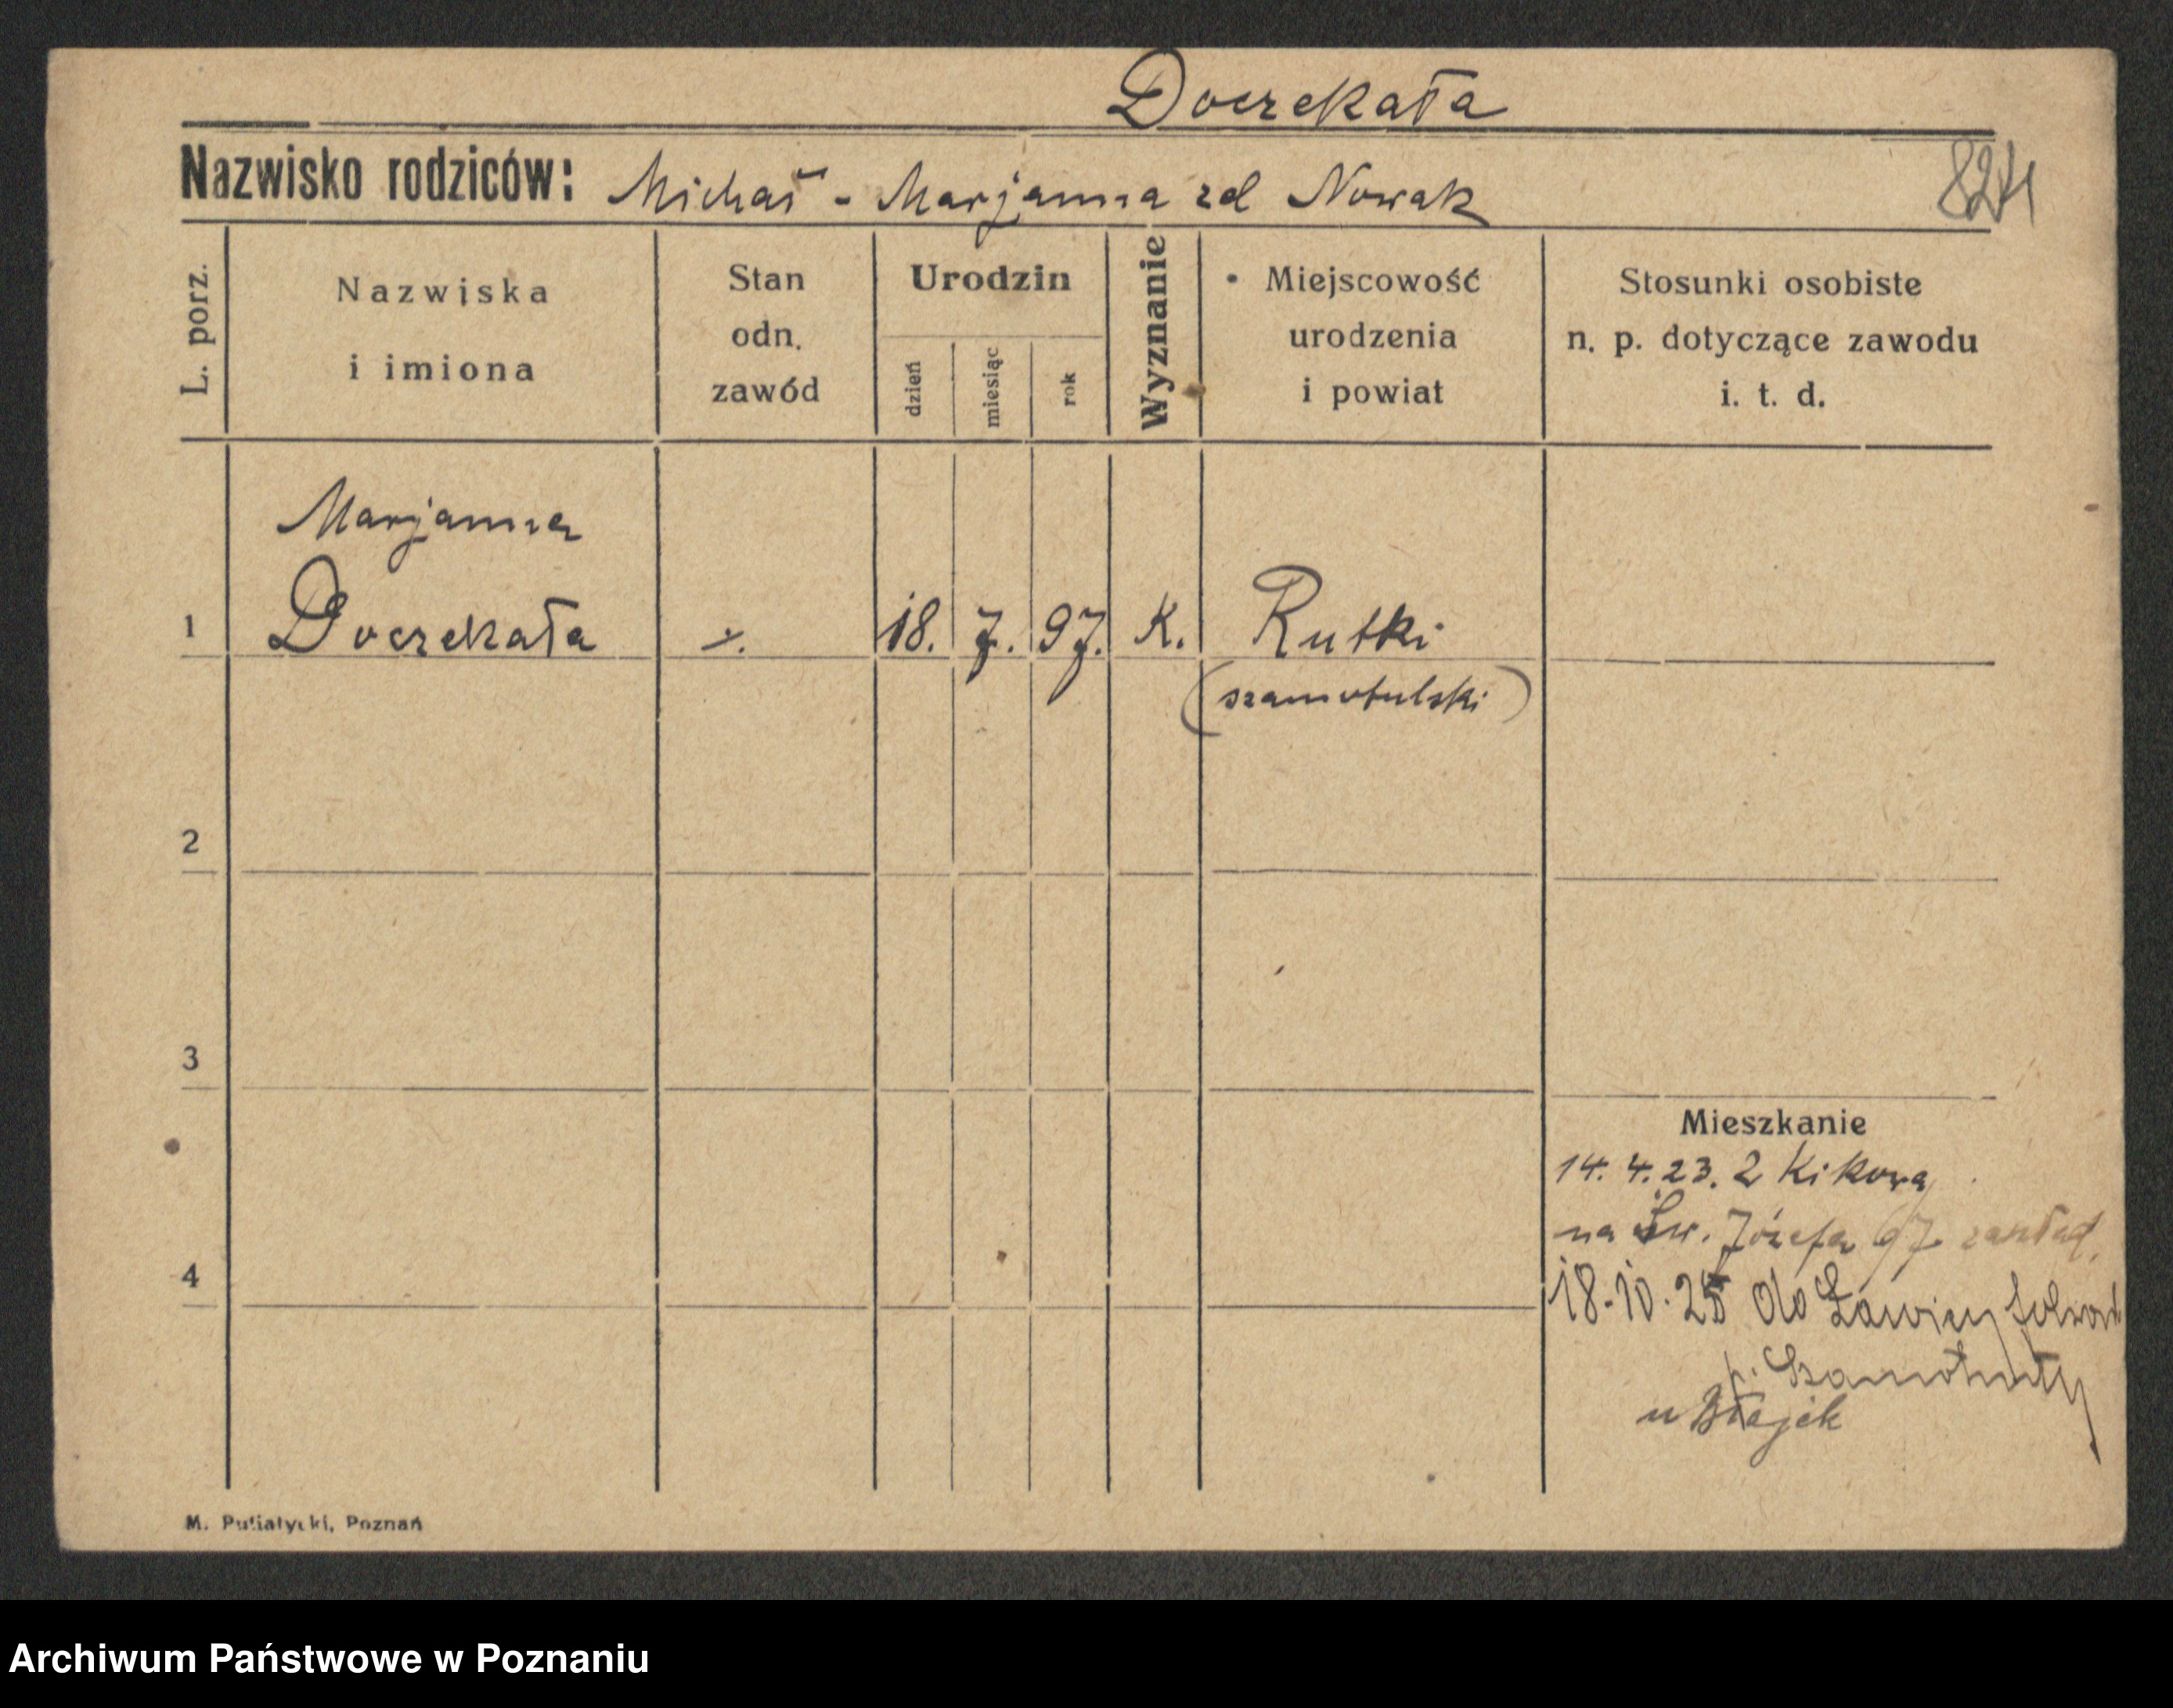 Doczekała
Nazwisko rodziców: Michał - Marjanna zd Nowak
L. porz.
Nazwiska i imiona
Stan odn. zawód
Urodzin
dzień
miesiąc
rok
Wyznanie
Miejscowość urodzenia i powiat
Stosunki osobiste n. p. dotyczące zawodu i. t. d.
Marjanna
1 Doczekała 18. 7. 97. K. Rutki
(szamotulski)
2
3
Mieszkanie
14. 4. 23. z Kikowa
na Św. Józefa 6/7 zakład.
4
18-10-25 do
p. Szamotuły
u
M. Putiatycki, Poznań
Archiwum Państwowe w Poznaniu